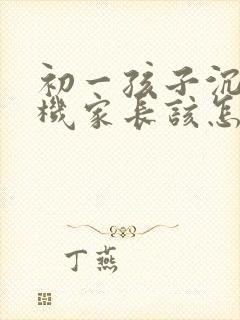 初一孩子沉
機家長該怎
丁燕